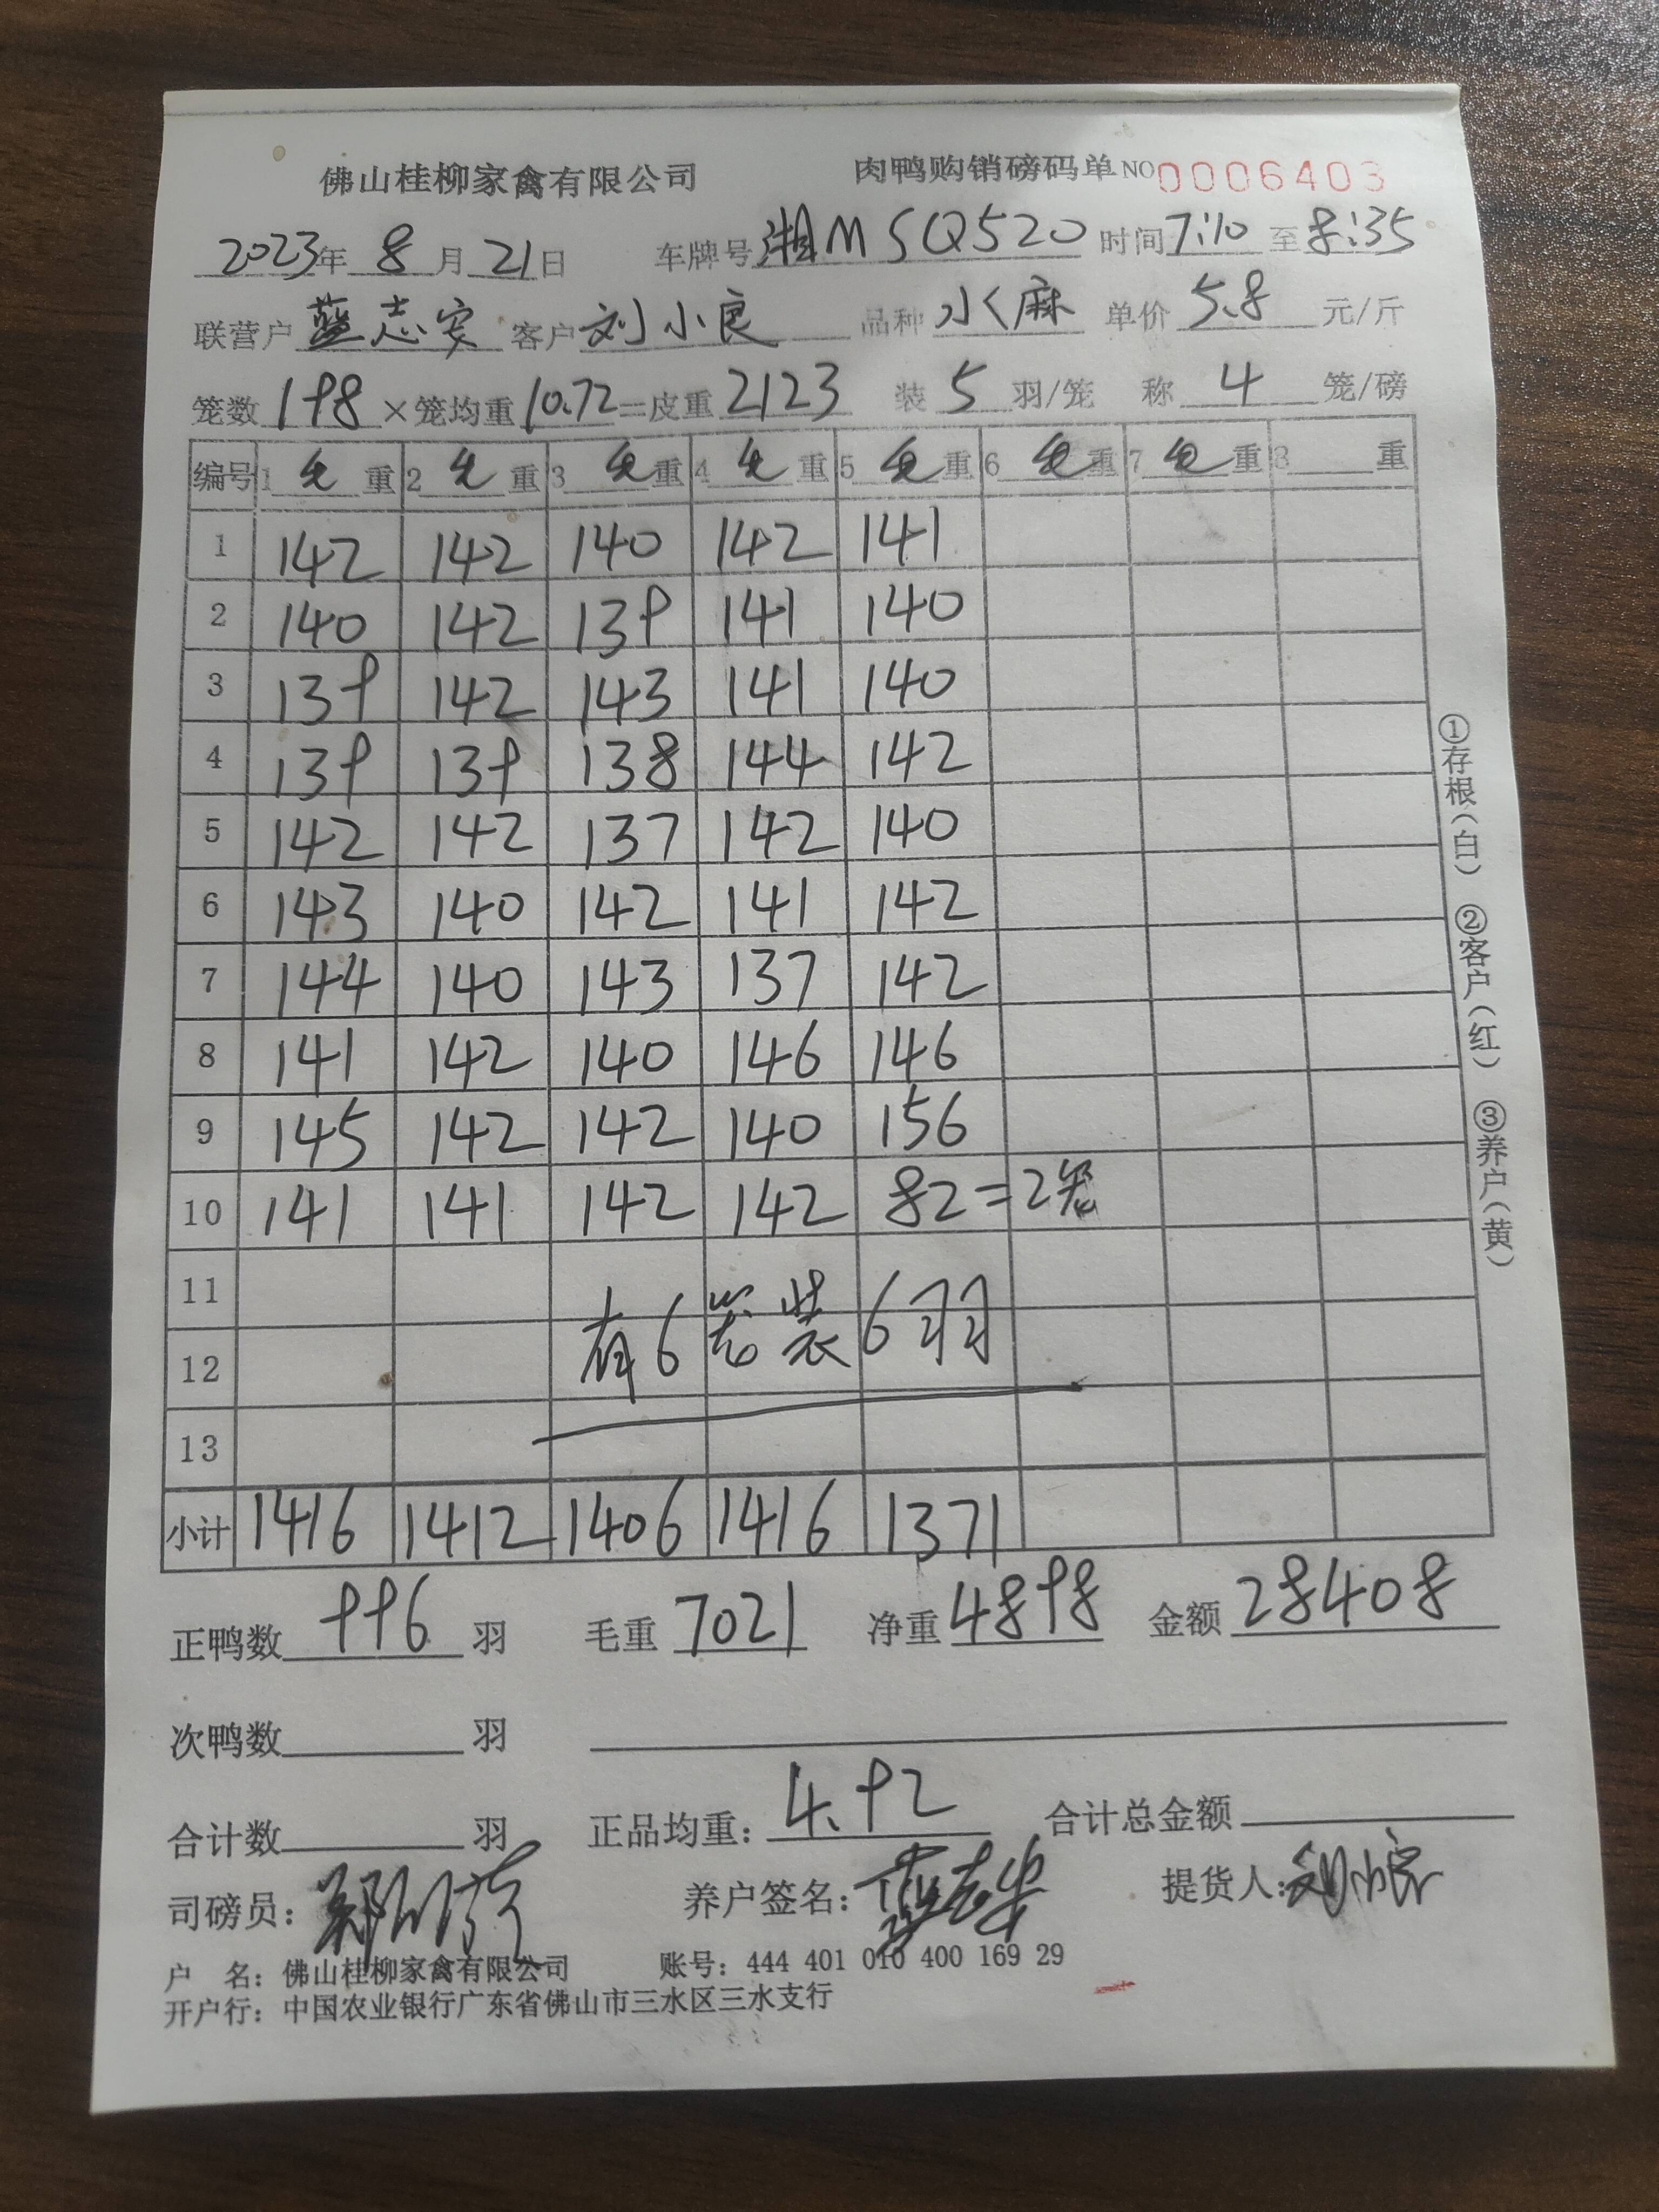 佛山桂柳家禽有限公司 肉鸭购销磅码单 NO 0006403
2023年 8月 21日 车牌号 湘M5Q520 时间 7:10 至 8:35
联营户 蓝志安 客户 刘小良 品种 水麻 单价 5.8 元/斤
笼数 198 ×笼均重 10.72 =皮重 2123 装 5 羽/笼 称 4 笼/磅
编号 1 毛重 2 毛重 3 毛重 4 毛重 5 毛重 6 毛重 7 毛重 8 重
1 142 142 140 142 141
2 140 142 139 141 140
3 139 142 143 141 140
4 139 139 138 144 142
5 142 142 137 142 140
6 143 140 142 141 142
7 144 140 143 137 142
8 141 142 140 146 146
9 145 142 142 140 156
10 141 141 142 142 82=2笼
11
有6笼装6羽
12
13
小计 1416 1412 1406 1416 1371
正鸭数 996 羽 毛重 7021 净重 4898 金额 28408
次鸭数 羽
合计数 羽 正品均重: 4.92 合计总金额
司磅员: 养户签名: 蓝志安 提货人: 刘小良
户 名: 佛山桂柳家禽有限公司 账号: 444 401 010 400 169 29
开户行: 中国农业银行广东省佛山市三水区三水支行
①存根(白) ②客户(红) ③养户(黄)